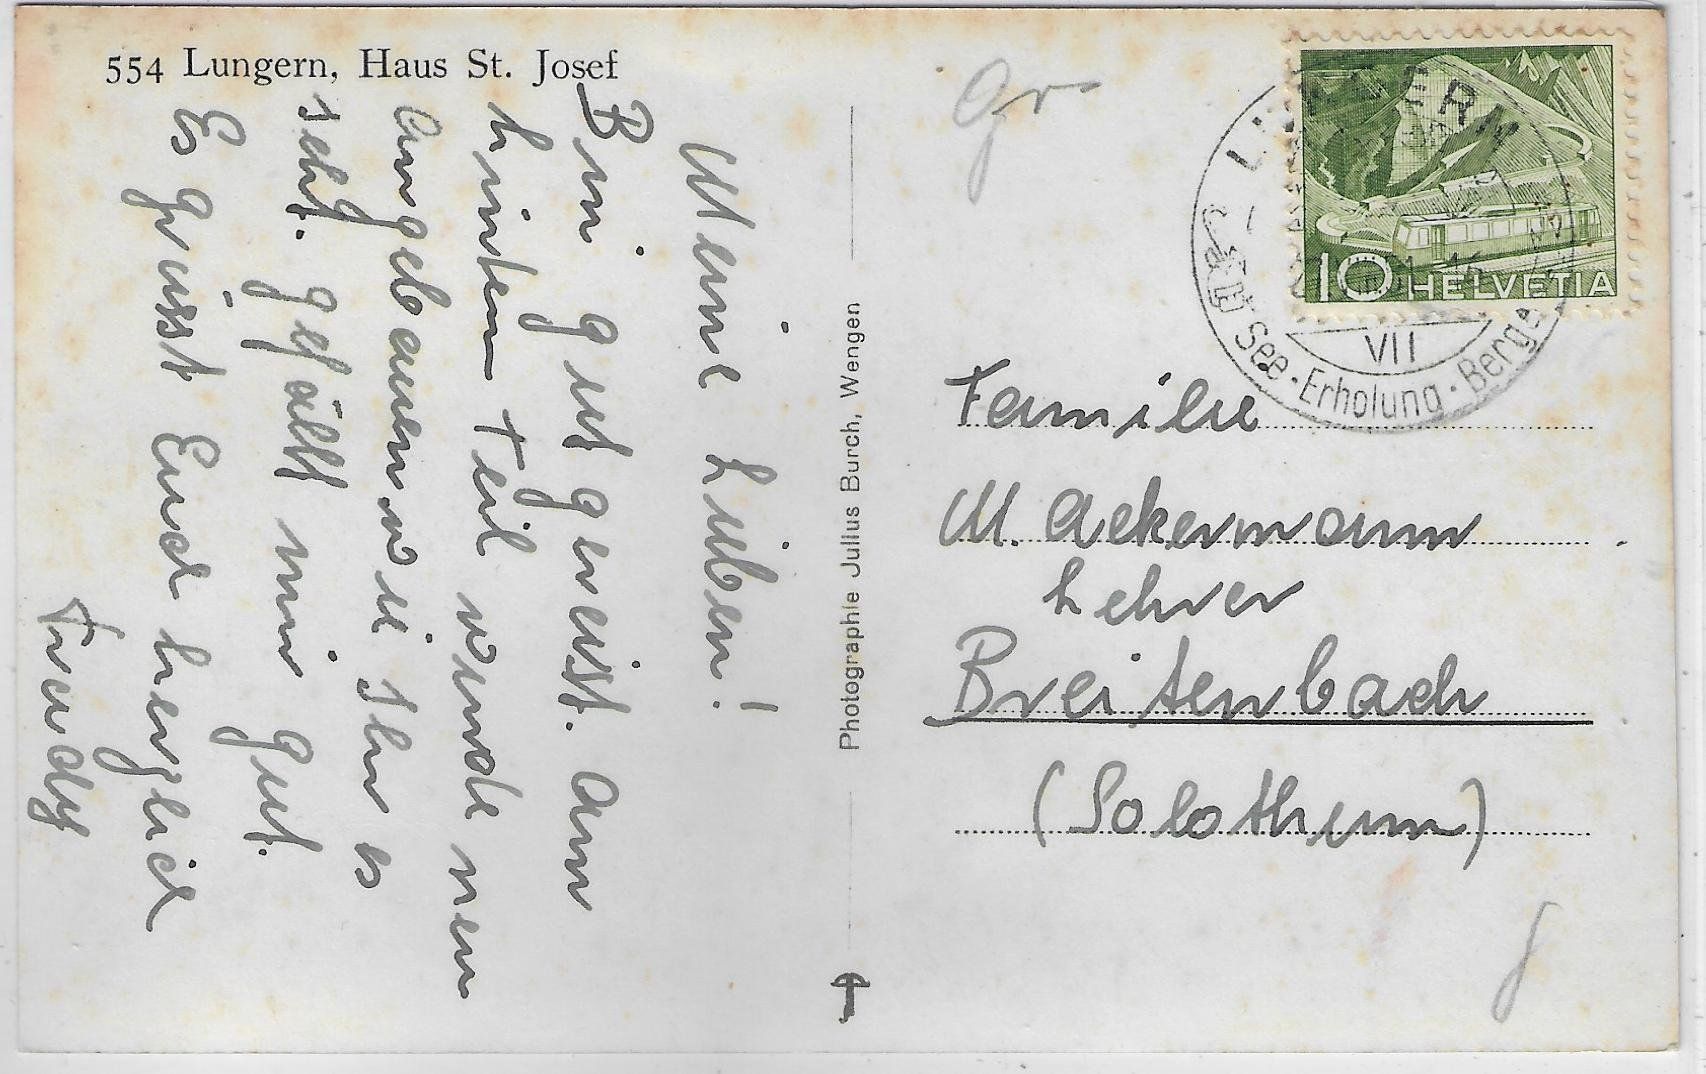 554 Lungern, Haus St. Josef
Meine Lieben!
Bin gut gereist. Am
hintern Teil wurde neu
angebaut wie Ihr es
seht. Gefällt mir gut.
Es grüsst Euch herzlich
Trudy
Photographie Julius Burch, Wengen
Gr
LUNGERN
VII
See · Erholung · Berge
10 HELVETIA
Familie
M. Ackermann
Lehrer
Breitenbach
(Solothurn)